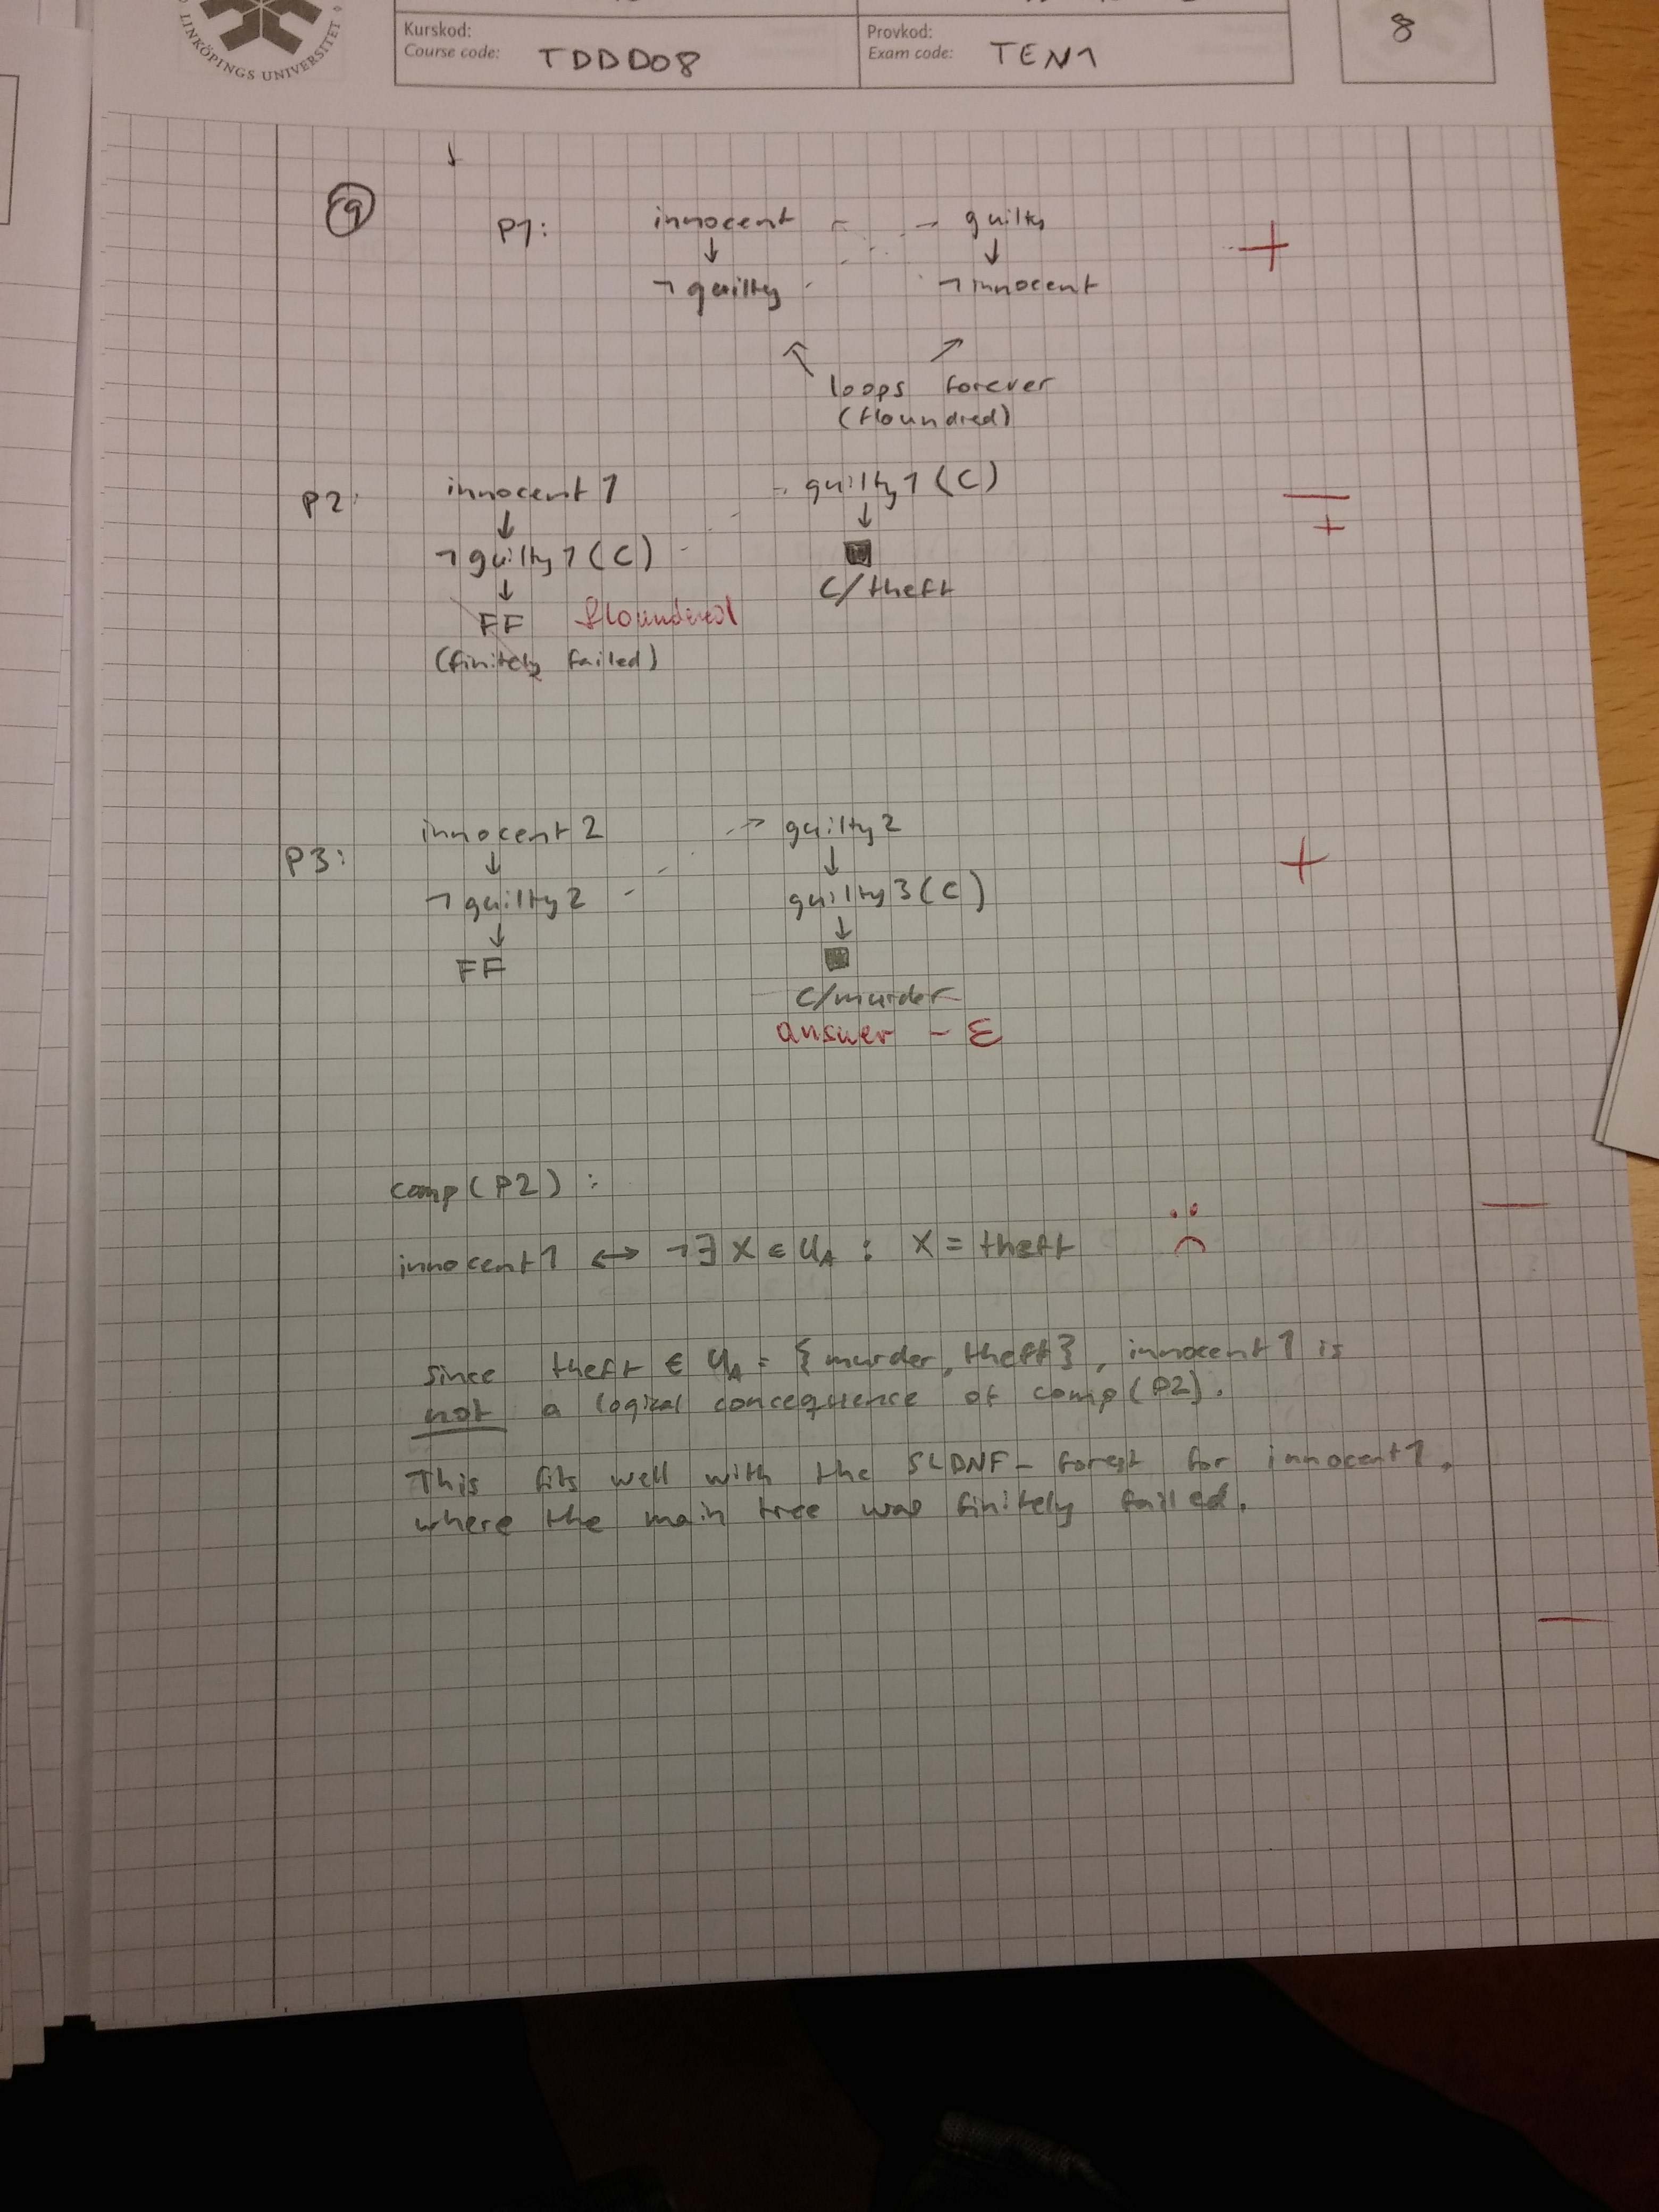 LINKÖPINGS UNIVERSITET
Kurskod:
Course code: TDDD08
Provkod:
Exam code: TEN1
8
9
P1: innocent guilty +
↓ ↓
¬guilty ¬innocent
loops forever
(floundred)
P2: innocent1 guilty1(C) —
↓ ↓ +
¬guilty1(C) ■
↓ C/theft
FF floundered
(finitely failed)
P3: innocent2 guilty2 +
↓ ↓
¬guilty2 guilty3(C)
↓ ↓
FF ■
C/murder
answer - ε
comp(P2): —
innocent1 ↔ ¬∃ X ∈ U_A : X = theft
since theft ∈ U_A = {murder, theft}, innocent1 is
not a logical concequence of comp(P2).
This fits well with the SLDNF-forest for innocent1,
where the main tree was finitely failed.
—